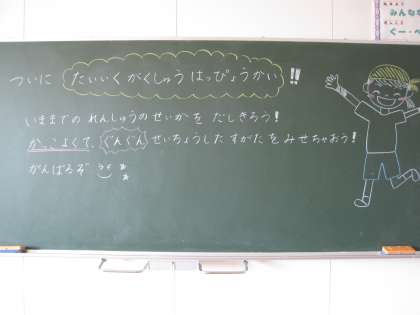 みんな
ぐー・ペ
ついに たいいくがくしゅうはっぴょうかい!!
いままでの れんしゅうのせいかを だしきろう!
かっこよくて、ぐんぐん せいちょうした すがたを みせちゃおう!
がんばるぞ